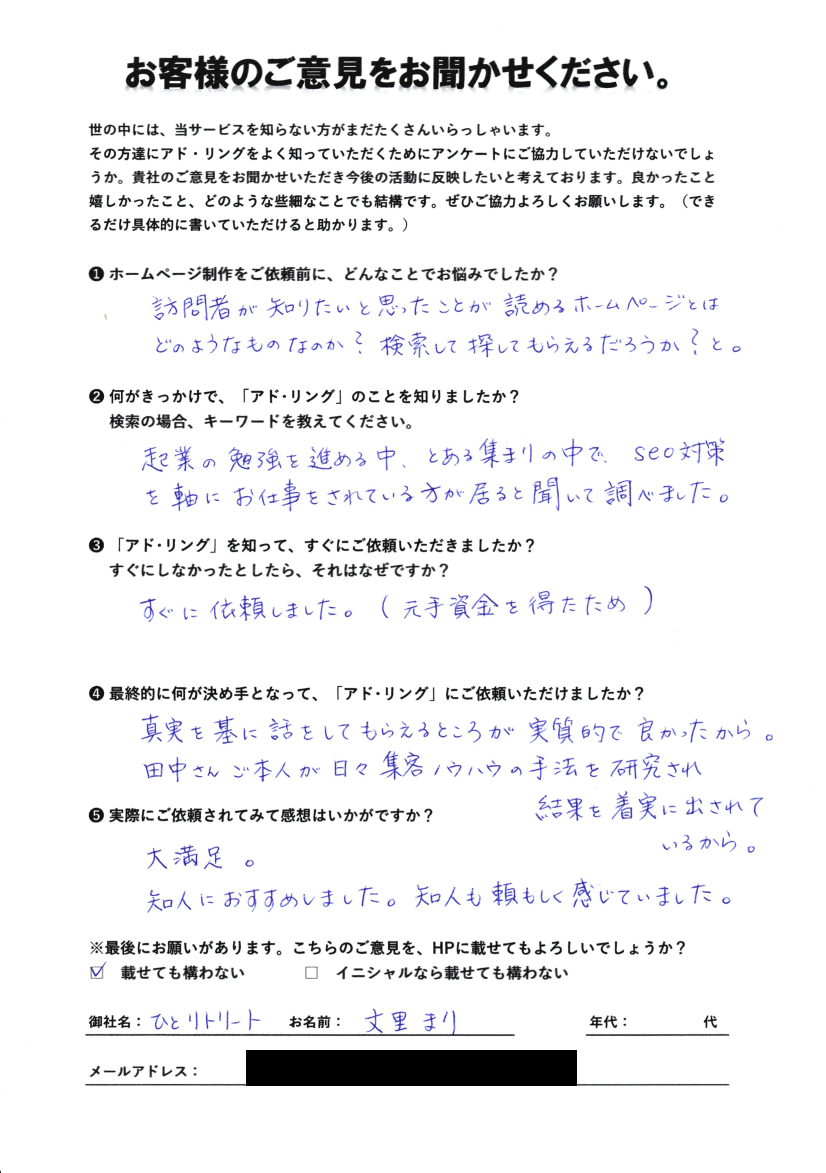 お客様のご意見をお聞かせください。
世の中には、当サービスを知らない方がまだたくさんいらっしゃいます。
その方達にアド・リングをよく知っていただくためにアンケートにご協力していただけないでしょ
うか。貴社のご意見をお聞かせいただき今後の活動に反映したいと考えております。良かったこと
嬉しかったこと、どのような些細なことでも結構です。ぜひご協力よろしくお願いします。（でき
るだけ具体的に書いていただけると助かります。）
❶ ホームページ制作をご依頼前に、どんなことでお悩みでしたか？
訪問者が知りたいと思ったことが読めるホームページとは
どのようなものなのか？検索して探してもらえるだろうか？と。
❷ 何がきっかけで、「アド・リング」のことを知りましたか？
検索の場合、キーワードを教えてください。
起業の勉強を進める中、とある集まりの中で、seo対策
を軸にお仕事をされている方が居ると聞いて調べました。
❸ 「アド・リング」を知って、すぐにご依頼いただきましたか？
すぐにしなかったとしたら、それはなぜですか？
すぐに依頼しました。（元手資金を得たため）
❹ 最終的に何が決め手となって、「アド・リング」にご依頼いただけましたか？
真実を基に話をしてもらえるところが実質的で良かったから。
田中さんご本人が日々集客ノウハウの手法を研究され
結果を着実に出されて
いるから。
❺ 実際にご依頼されてみて感想はいかがですか？
大満足。
知人におすすめしました。知人も頼もしく感じていました。
※最後にお願いがあります。こちらのご意見を、HPに載せてもよろしいでしょうか？
☑ 載せても構わない　□ イニシャルなら載せても構わない
御社名：ひとリトリート　お名前：文里 まり　年代：　代
メールアドレス：